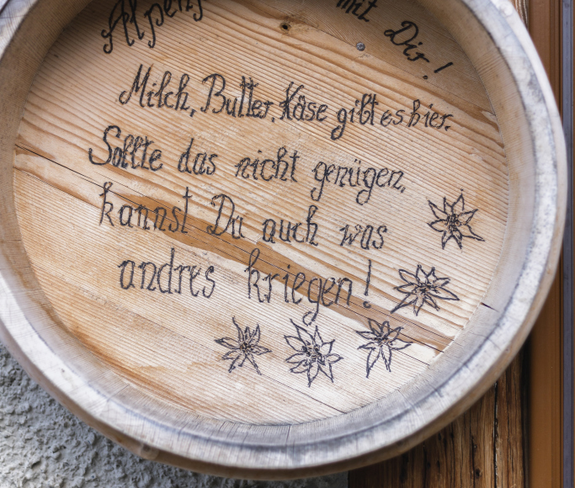 mit Dir!
Milch, Butter, Käse gibt es hier.
Sollte das nicht genügen,
kannst Du auch was
andres kriegen!